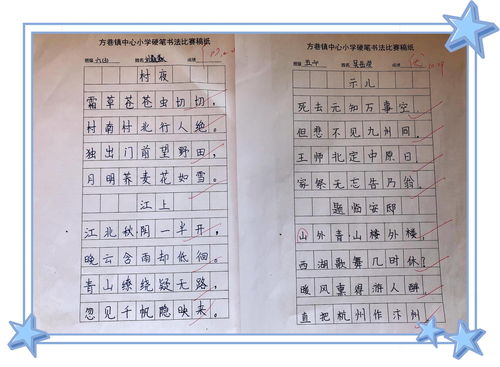 方巷镇中心小学硬笔书法比赛稿纸
班级 六(4) 姓名 成绩
村夜
霜草苍苍虫切切，
村南村北行人绝。
独出门前望野田，
月明荞麦花如雪。
江上
江北秋阴一半开，
晚云含雨却低徊。
青山缭绕疑无路，
忽见千帆隐映来。
方巷镇中心小学硬笔书法比赛稿纸
班级 姓名 成绩
示儿
死去元知万事空，
但悲不见九州同。
王师北定中原日，
家祭无忘告乃翁。
题临安邸
山外青山楼外楼，
西湖歌舞几时休？
暖风熏得游人醉，
直把杭州作汴州。